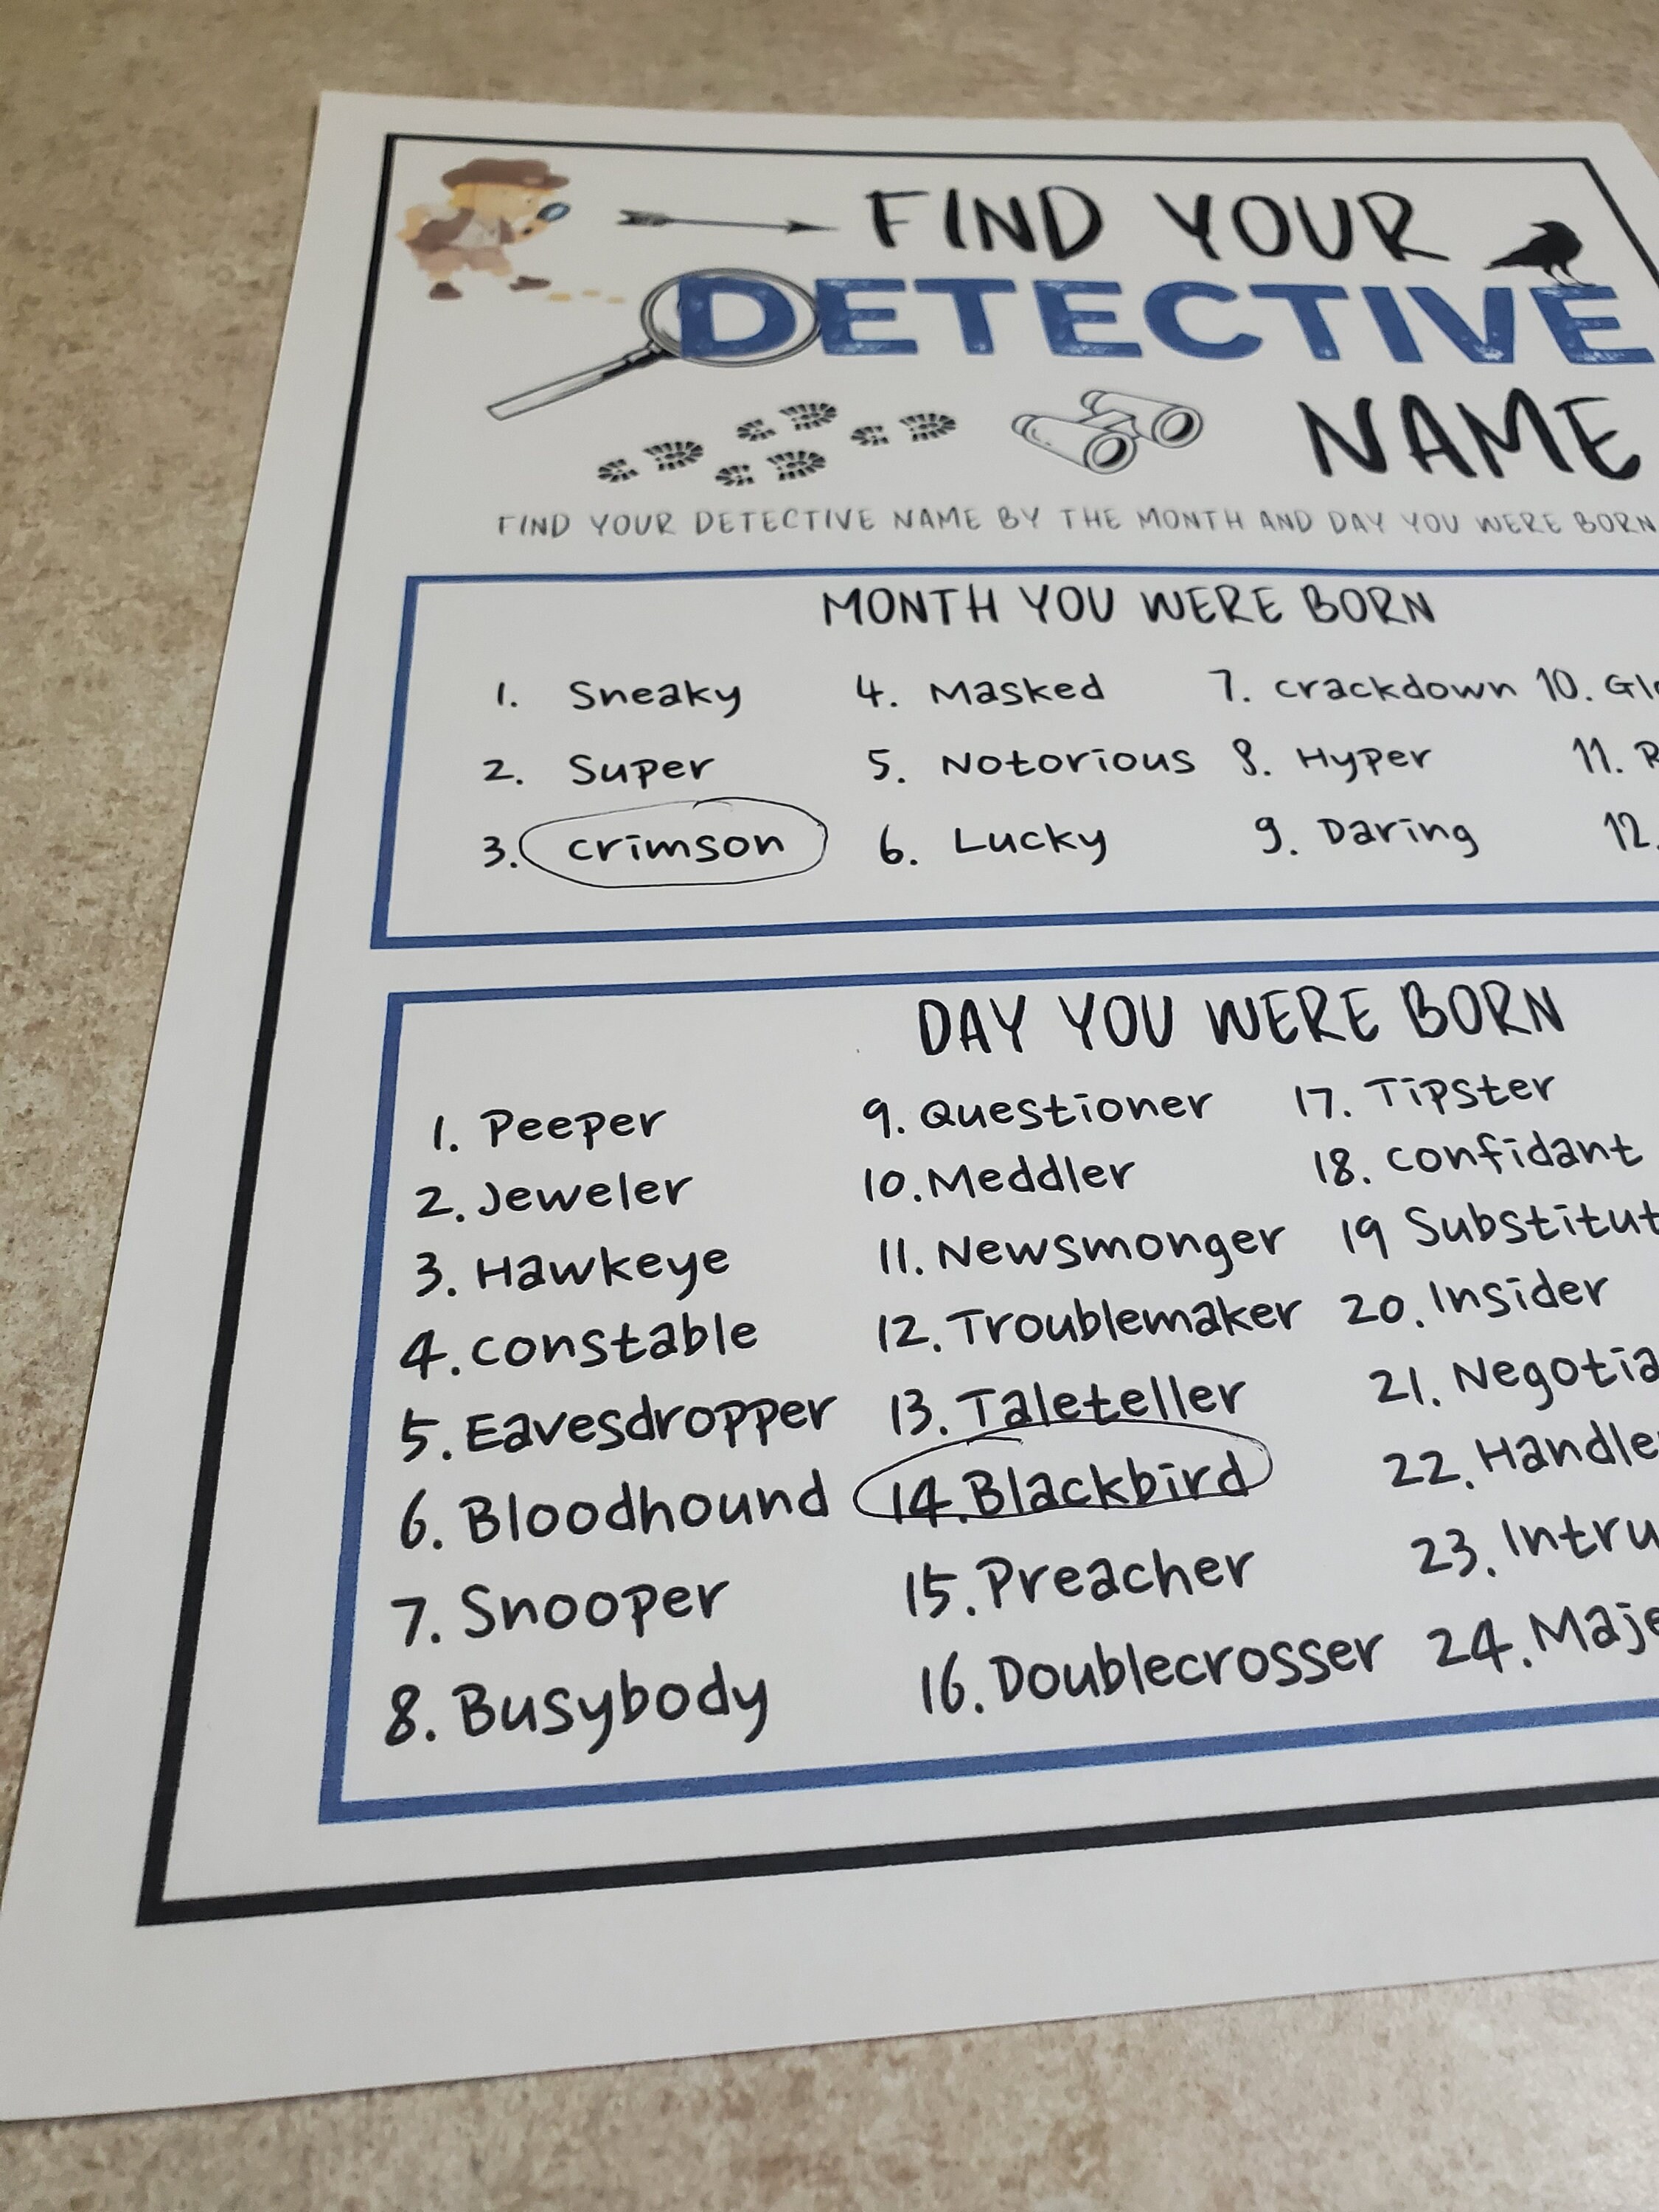 FIND YOUR
DETECTIVE
NAME
FIND YOUR DETECTIVE NAME BY THE MONTH AND DAY YOU WERE BORN
MONTH YOU WERE BORN
1. Sneaky 4. Masked 7. Crackdown 10.
2. Super 5. Notorious 8. Hyper 11.
3. Crimson 6. Lucky 9. Daring 12.
DAY YOU WERE BORN
1. Peeper 9. Questioner 17. Tipster
2. Jeweler 10. Meddler 18. Confidant
3. Hawkeye 11. Newsmonger 19
4. Constable 12. Troublemaker 20. Insider
5. Eavesdropper 13. Taleteller 21.
6. Bloodhound 14. Blackbird 22.
7. Snooper 15. Preacher 23.
8. Busybody 16. Doublecrosser 24.